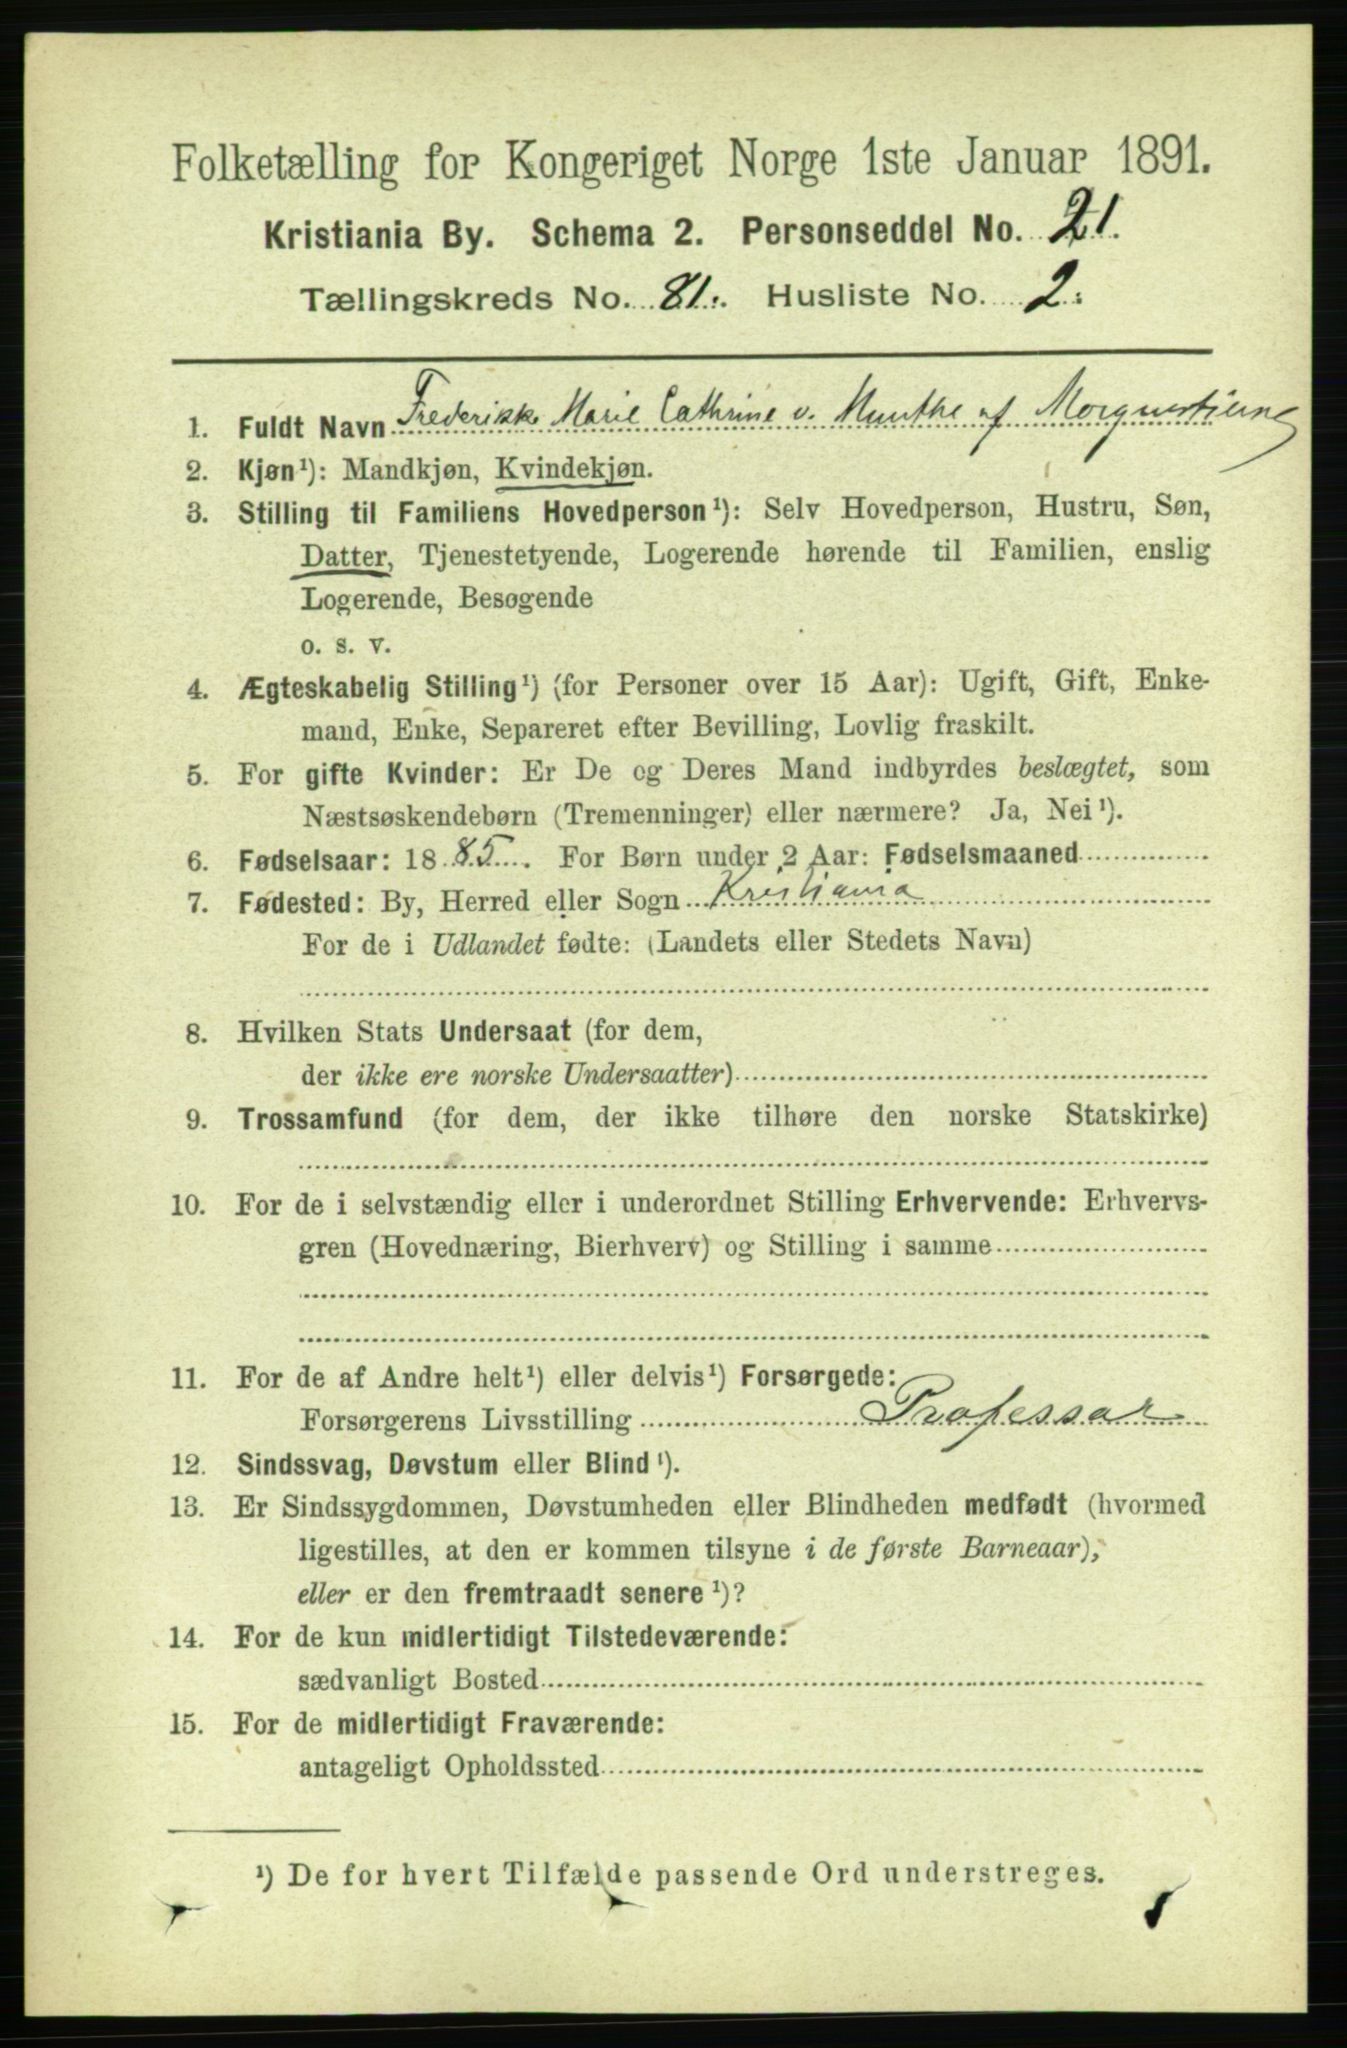 Folketælling for Kongeriget Norge 1ste Januar 1891.
Kristiania By. Schema 2. Personseddel No. 21.
Tællingskreds No. 81. Husliste No. 2.
1. Fuldt Navn Frederikke Marie Cathrine v. Munthe af Morgenstierne
2. Kjøn¹): Mandkjøn, Kvindekjøn.
3. Stilling til Familiens Hovedperson¹): Selv Hovedperson, Hustru, Søn,
Datter, Tjenestetyende, Logerende hørende til Familien, enslig
Logerende, Besøgende
o. s. v.
4. Ægteskabelig Stilling¹) (for Personer over 15 Aar): Ugift, Gift, Enke-
mand, Enke, Separeret efter Bevilling, Lovlig fraskilt.
5. For gifte Kvinder: Er De og Deres Mand indbyrdes beslægtet, som
Næstsøskendebørn (Tremenninger) eller nærmere? Ja, Nei¹).
6. Fødselsaar: 1885. For Børn under 2 Aar: Fødselsmaaned
7. Fødested: By, Herred eller Sogn Kristiania
For de i Udlandet fødte: (Landets eller Stedets Navn)
8. Hvilken Stats Undersaat (for dem,
der ikke ere norske Undersaatter)
9. Trossamfund (for dem, der ikke tilhøre den norske Statskirke)
10. For de i selvstændig eller i underordnet Stilling Erhvervende: Erhvervs-
gren (Hovednæring, Bierhverv) og Stilling i samme
11. For de af Andre helt¹) eller delvis¹) Forsørgede:
Forsørgerens Livsstilling Professor
12. Sindssvag, Døvstum eller Blind¹).
13. Er Sindssygdommen, Døvstumheden eller Blindheden medfødt (hvormed
ligestilles, at den er kommen tilsyne i de første Barneaar),
eller er den fremtraadt senere¹)?
14. For de kun midlertidigt Tilstedeværende:
sædvanligt Bosted
15. For de midlertidigt Fraværende:
antageligt Opholdssted
¹) De for hvert Tilfælde passende Ord understreges.